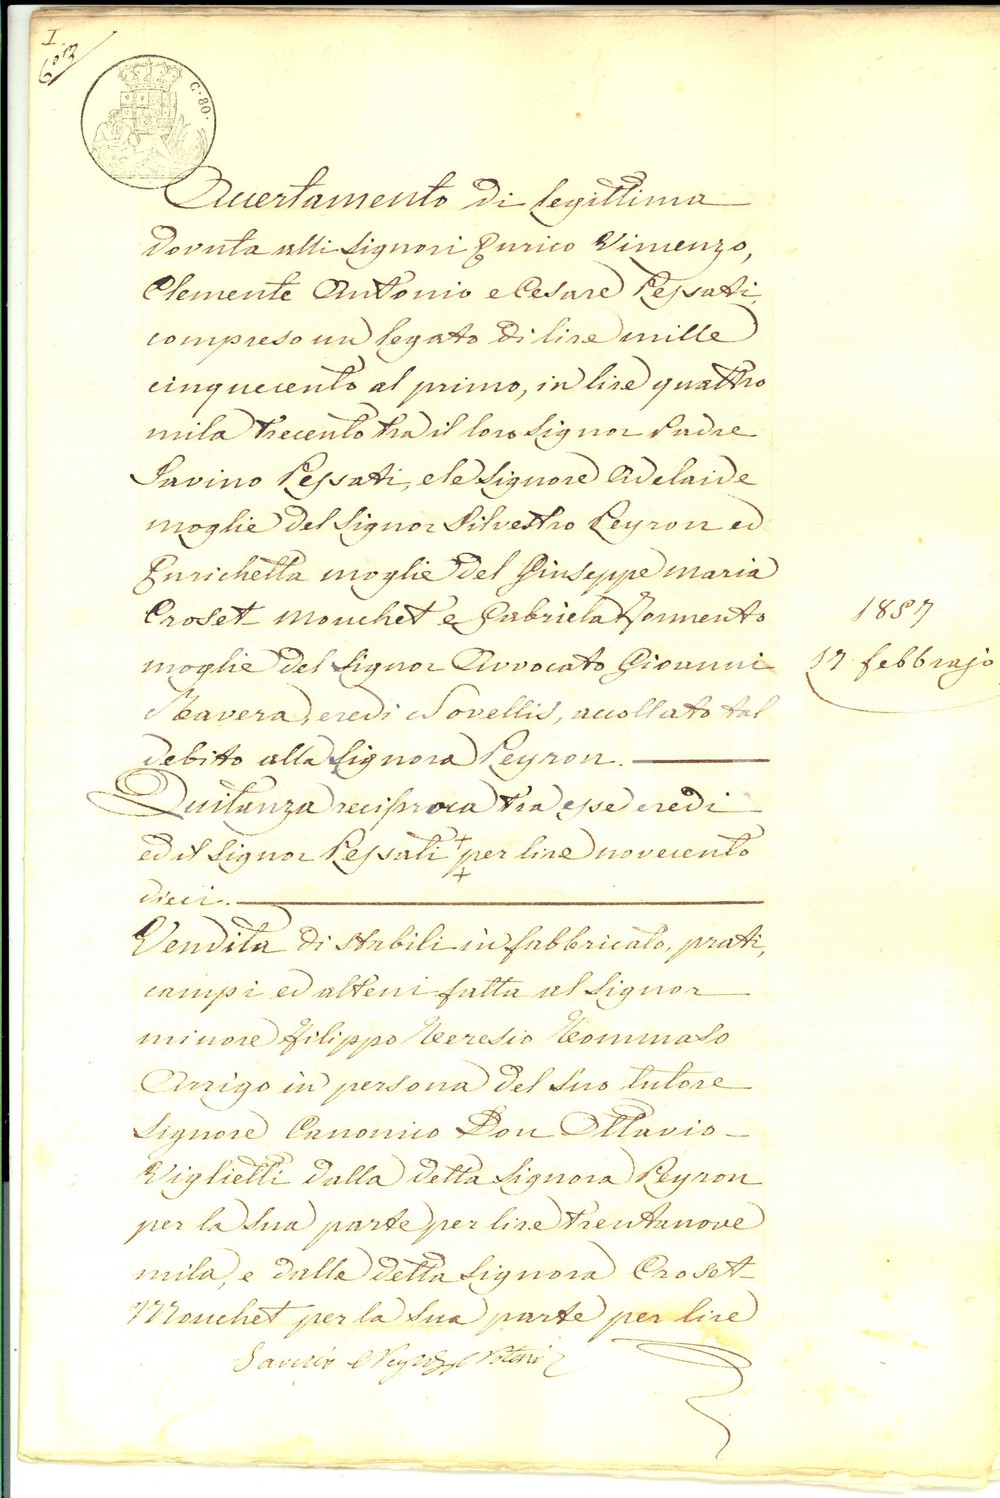 I.
C. 80.
Accertamento di legittima
dovuta alli Signori Enrico Vincenzo,
Clemente Antonio e Cesare Pessati,
compreso un legato di lire mille
cinquecento al primo, in lire quattro
mila trecento tra il loro Signor Padre
Savino Pessati, e le Signore Adelaide
moglie del Signor Silvestro Peyron ed
Enrichetta moglie del Giuseppe Maria
Croset Mouchet e Gabriela Formento
moglie del Signor Avvocato Giovanni
Ravera, eredi Novellis, accollato tal
debito alla Signora Peyron.
Quitanza reciproca tra esse eredi
ed il Signor Pessati per lire novecento
dieci.
Vendita di stabili in fabbricato, prati,
campi ed alteni fatta al Signor
minore Filippo Teresio Tommaso
Arrigo in persona del suo tutore
Signore Canonico Don Ottavio
Viglietti dalla detta Signora Peyron
per la sua parte per lire trentanove
mila, e dalla detta Signora Croset
Mouchet per la sua parte per lire
1857
17 febbrajo